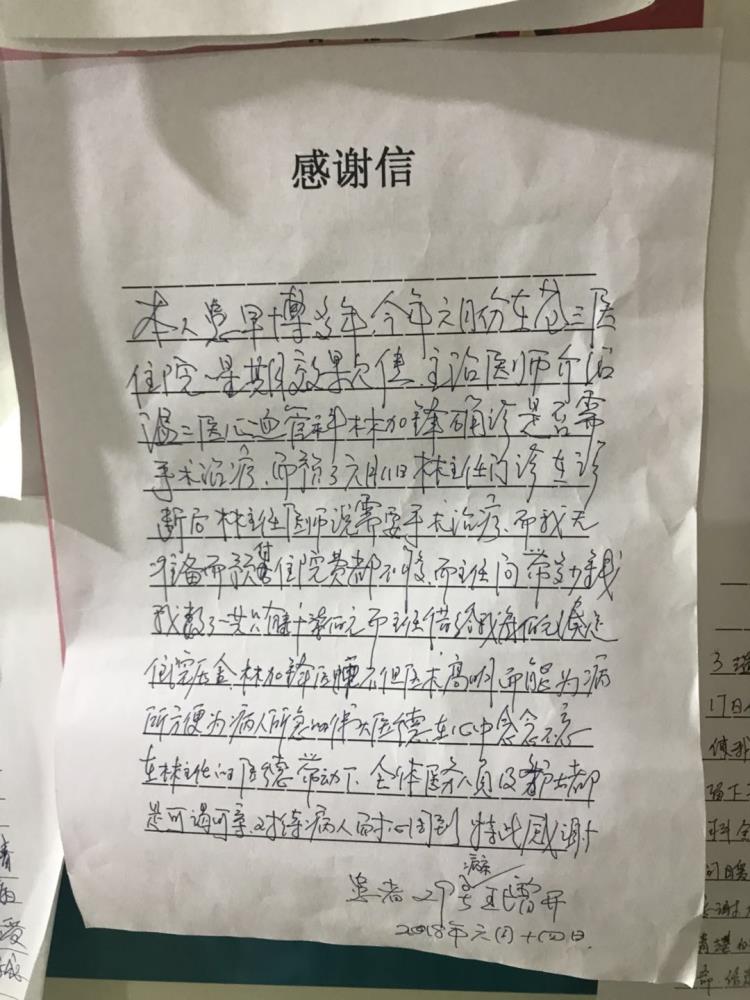 感谢信
本人患早搏多年,今年六月份在苍三医
住院一星期效果欠佳 主治医师介绍
温三医心血管科林加锋确诊是否需
手术治疗.而预了六月11日林主任门诊 在诊
断后 林主任医师说需要手术治疗.而我无
准备而预付住院费都不够.而主任问带多少钱
我数了一共只有 而主任借给我
住院压金.林加锋医 不但医术高明 而能为病
所方便为病人所急的伟大医德.在心中念念不忘
在林主任的医德带动下.全体医务人员及护士都
是可谒可亲.对待病人耐心周到 特此感谢
患者 29号
病床
2018年六月十四日.
17日